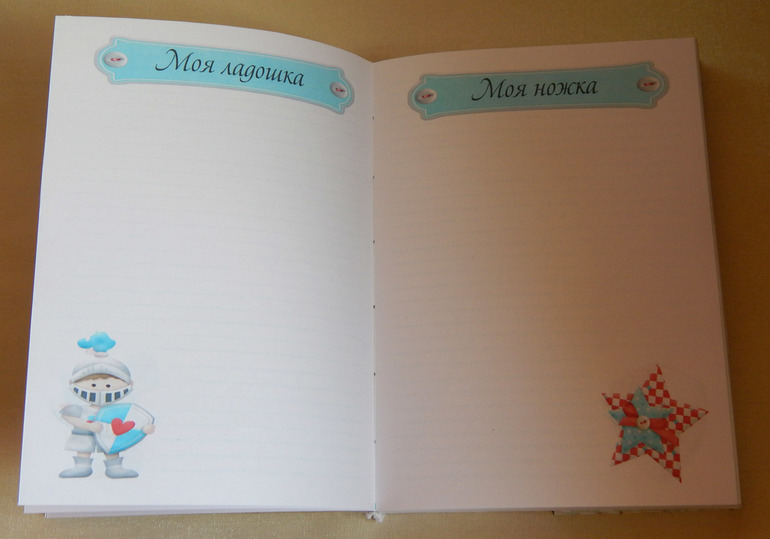 Моя ладошка
Моя ножка